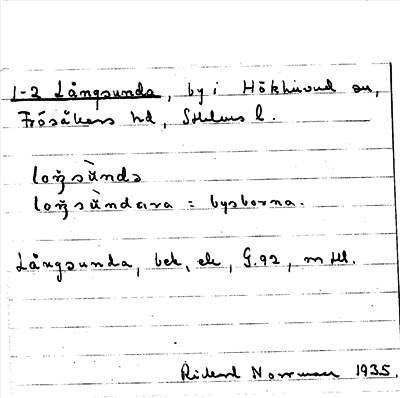 1-2 Långsunda, by i Hökhuvud sn,
Frösåkers hd, Sthlms l.
loŋsùndə
loŋsùndara = bysborna.
Långsunda, bek, ek, G.92, m tll.
Rickard Norrman 1935.